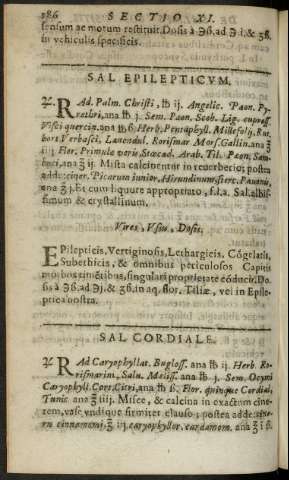 186 SECTIO XI.
sensum ac motum restituit. Dosis à ℈ß. ad ℈ j. & ʒß.
in vehiculis specificis.
SAL EPILEPTICVM.
♃. RAd. Palm. Christi, ℔ ij. Angelic. Paon. Py-
rethri, ana ℔ j. Sem. Paon. Scob. Lig. cupress.
Visci quercin. ana ℔ ß. Herb. Pentaphyll. Millefolij, Rut.
Verbasci, Lavendul. Rorismar. Mors. Gallin. ana ʒ
iij. Flor. Primulæ veris, Stœcad. Arab. Til. Paon. Sam-
buci, ana ʒ ij. Mista calcinentur in reuerberio; postea
Picarum junior. Hirundinum, sterc. Pauonis,
ana ʒ j. Et cum liquore appropriato, f.l.a. Sal, albis-
simum & crystallinum.
Vires, Vsus, Dosis.
EPilepticis, Vertiginosis, Lethargicis, Cõgelatis,
Subethicis, & omnibus periculosos Capitis
morbos timẽtibus, singulari proprietate cõducit. Do-
sis à ℈ß. ad ℈j. & ʒß. in aq. flor. Tiliæ, vel in Epile-
ptica nostra.
SAL CORDIALE.
♃. RAd Caryophyllat. Bugloss. ana ℔ ij. Herb. Ro-
rismarini, Salu. Meliss. ana ℔ j. Sem. Ocymi
Caryophyll. Cort. Citri, ana ℔ ß. Flor. quinque Cordial,
Tunic. ana ʒ iiij. Misce, & calcina in exactum cine-
rem, vase vndique firmiter clauso; postea adde cine-
rem cinnamomi, ʒ iij. caryophyllor. cardamom. ana ʒ i ß.